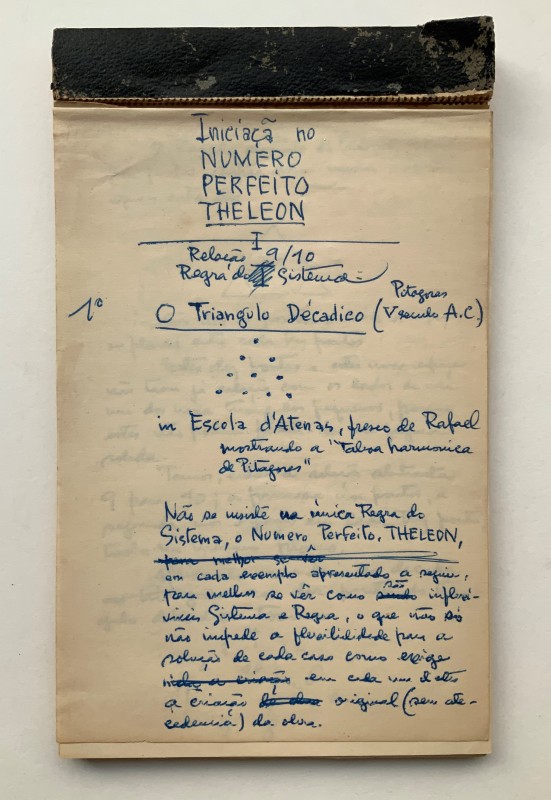 Iniciaçã no
NUMERO
PERFEITO
THELEON
I
Relação 9/10
Regra do Sistema
1º O Triangulo Décadico (Pitagoras V seculo A.C.)
in Escola d'Atenas, fresco de Rafael
mostrando a "taboa harmonica
de Pitagoras"
Não se insiste na única Regra do
Sistema, o Numero Perfeito, THELEON,
para melhor se vêr
em cada exemplo apresentado a seguir,
para melhor se vêr como são
viveis Sistema e Regra, o que não só
não impede a flexibilidade para a
solução de cada caso como exige
a criação em cada um d'eles
a criação original (sem ate-
cedencia) da obra.